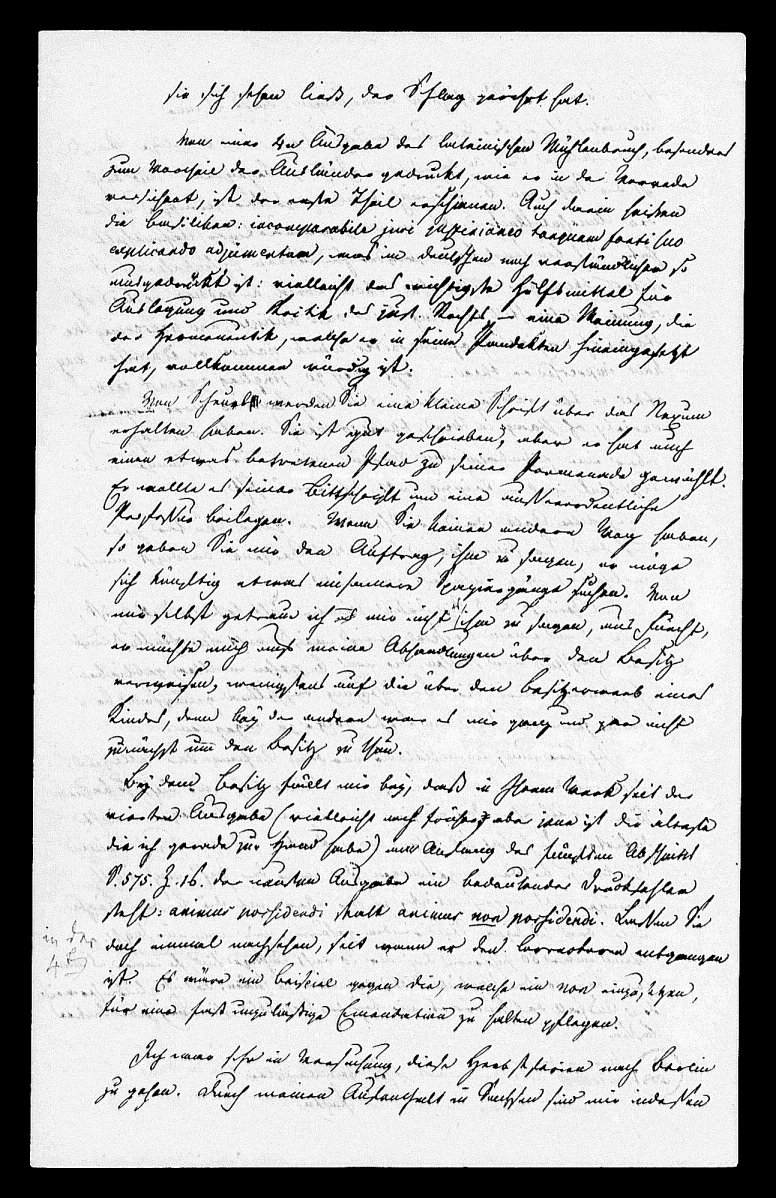 sie sich sehen ließ, der Schlag gerührt hat.
Von einer 4n Ausgabe des lateinischen Mühlenbruch, besonders
zum Vortheil der Ausländer gedruckt, wie er in der Vorrede
versichert, ist der erste Theil erschienen. Auch darin heißen
die Basiliken: incomparabile juri justinianeo tanquam fonti suo
explicando adjumentum, was im deutschen noch verständlicher so
ausgedrückt ist: vielleicht das wichtigste Hülfsmittel für
Auslegung und Kritik des just. Rechts, – eine Meinung, die
der Hermeneutik, welche er in seine Pandekten hineingesetzt
hat, vollkommen würdig ist.
Von Scheurl werden Sie eine kleine Schrift über das Nexum
erhalten haben. Sie ist gut geschrieben, aber er hat auch
einen etwas betretenen Pfad zu seiner Promenade gewählt.
Er wollte es seiner Bittschrift um eine außerordentliche
Professur beilegen. Wenn Sie keinen andern Weg haben,
so geben Sie mir den Auftrag, ihm zu sagen, er möge
sich künftig etwas einsamere Spaziergänge suchen. Von
mir selbst getraue ich mir nicht es ihm zu sagen, aus Furcht,
er möchte mich auf meine Abhandlungen über den Besitz
verweisen, wenigstens auf die über den Besitzerwerb eines
Kindes, denn bey der andern war es mir ganz und gar nicht
zunächst um den Besitz zu thun.
Bey dem Besitz fällt mir bey, daß in Ihrem Werk seit der
vierten Ausgabe (vielleicht noch früher, aber jene ist die älteste
die ich gerade zur Hand habe) am Anfang des fünften Abschnitts
S. 575. Z. 16. der neusten Ausgabe ein bedeutender Druckfehler
steht: animus possidendi statt animus non possidendi. Lassen Sie
doch einmal nachsehen, seit wann er den Correctoren entgangen
in der
4t
ist. Es wäre ein Beispiel gegen die, welche ein non einzusetzen,
für eine fast unzuläßige Emendation zu halten pflegen.
Ich war sehr in Versuchung, diese Herbstferien nach Berlin
zu gehen. Durch meinen Aufenthalt in Sachsen sind mir indessen